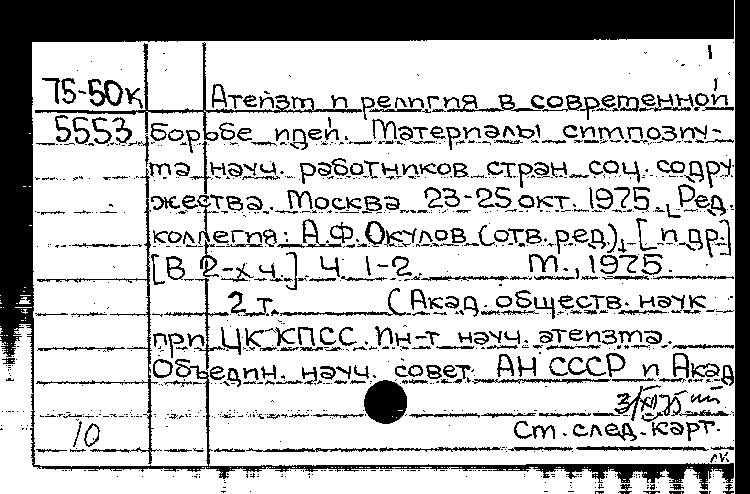 1
75-50к Атеизм и религия в современной
5553 борьбе идей. Материалы симпозиу-
ма науч. работников стран соц. содру
жества. Москва 23-25 окт. 1975. Ред.
коллегия: А.Ф.Окулов (отв.ред), [и др.]
[В 2-х ч.] Ч. 1-2. М., 1975.
2 т. (Акад. обществ. наук
при ЦК КПСС. Ин-т науч. атеизма.
Объедин. науч. совет АН СССР и Акад
10 См. след. карт.